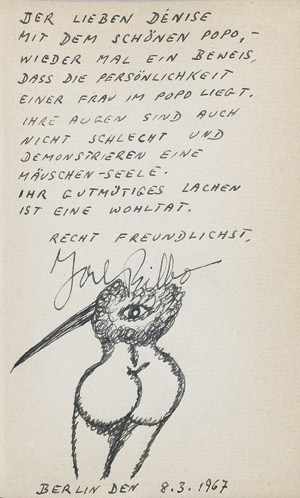 DER LIEBEN DENISE
MIT DEM SCHÖNEN POPO,-
WIEDER MAL EIN BEWEIS,
DASS DIE PERSÖNLICHKEIT
EINER FRAU IM POPO LIEGT.
IHRE AUGEN SIND AUCH
NICHT SCHLECHT UND
DEMONSTRIEREN EINE
MÄUSCHEN-SEELE.
IHR GUTMÜTIGES LACHEN
IST EINE WOHLTAT.
RECHT FREUNDLICHST,
BERLIN DEN 8.3.1967